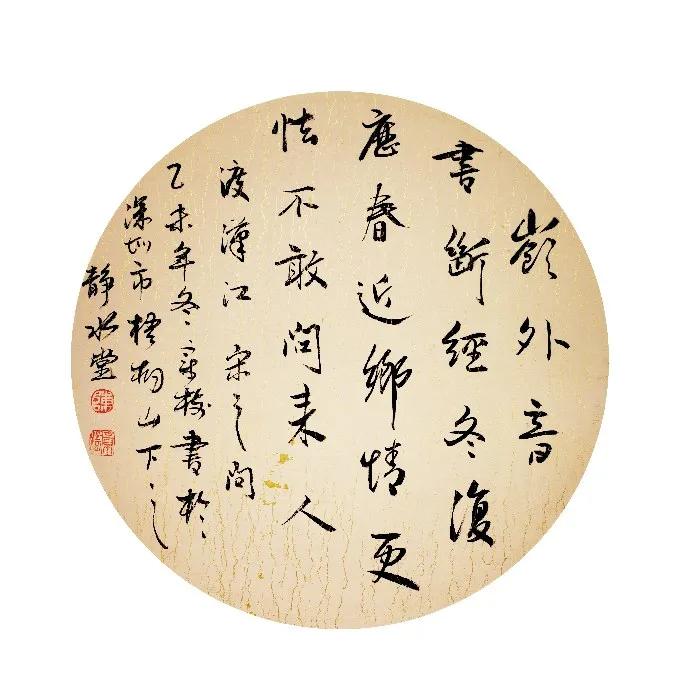 嶺外音
書斷經冬復
歷春近鄉情更
怯不敢問來人
渡漢江 宋之問
乙未年冬書於
深圳市梧桐山下之
靜水堂